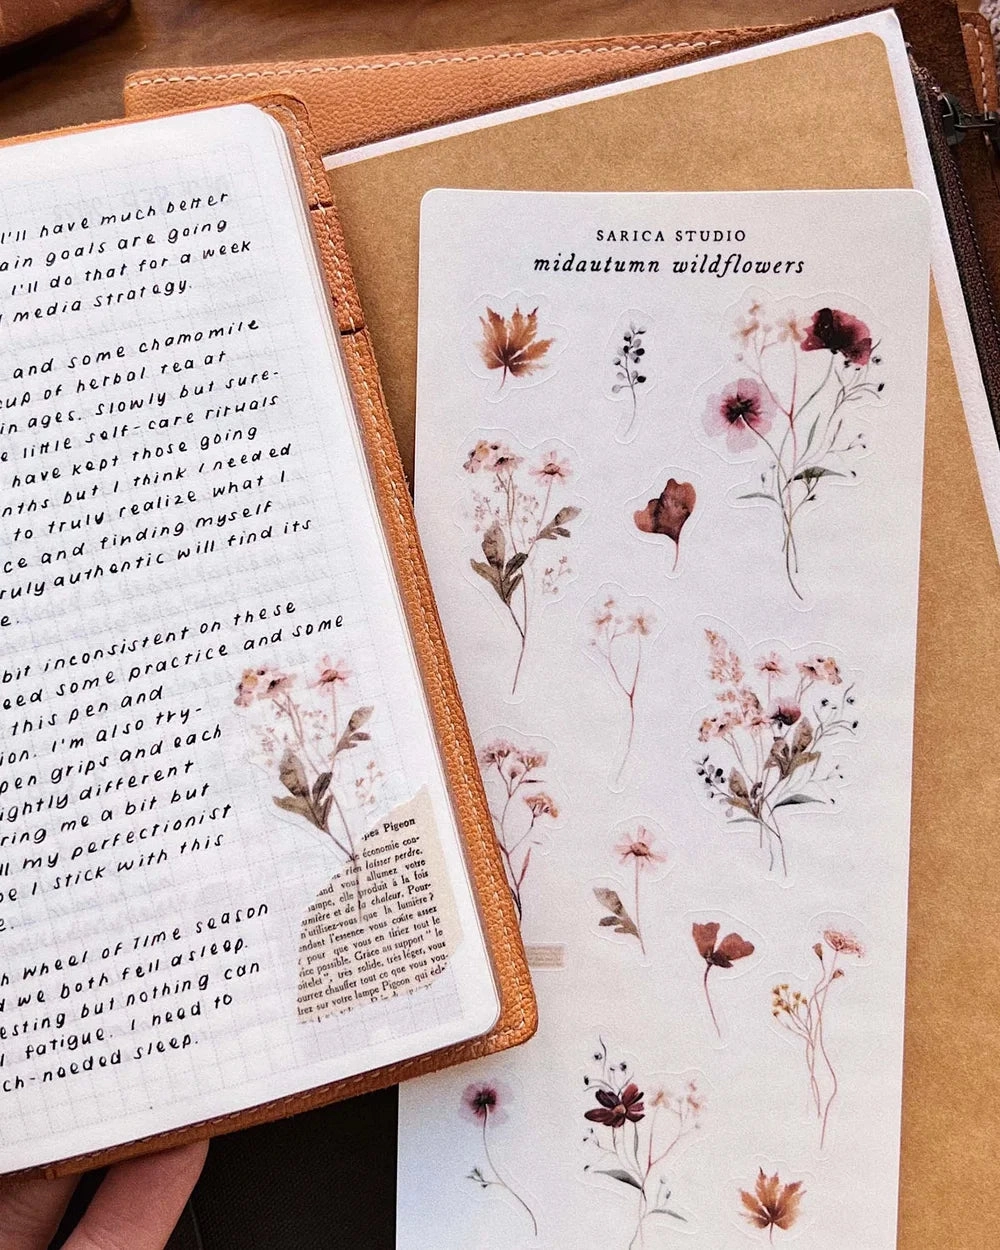 I'll have much better
ain goals are going
I'll do that for a week
media strategy.
and some chamomile
cup of herbal tea at
in ages. Slowly but sure-
e little self-care rituals
have kept those going
nths but I think I needed
to truly realize what I
ce and finding myself
ruly authentic will find its
e.
bit inconsistent on these
eed some practice and some
this pen and
ion. I'm also try-
pen grips and each
ightly different
ring me a bit but
ll my perfectionist
be I stick with this
e.
h Wheel of Time season
d we both fell asleep.
esting but nothing can
l fatigue. I need to
ch-needed sleep.
pes Pigeon
économie con-
rien laisser perdre.
and vous allumez votre
ampe, elle produit à la fois
umière et de la chaleur. Pour-
n'utilisez-vous que la lumière ?
endant l'essence vous coûte assez
pour que vous en tiriez tout le
ice possible. Grâce au support " le
oitelet ", très solide, très léger, vous
ourrez chauffer tout ce que vous vou-
drez sur votre lampe Pigeon qui écl
SARICA STUDIO
midautumn wildflowers